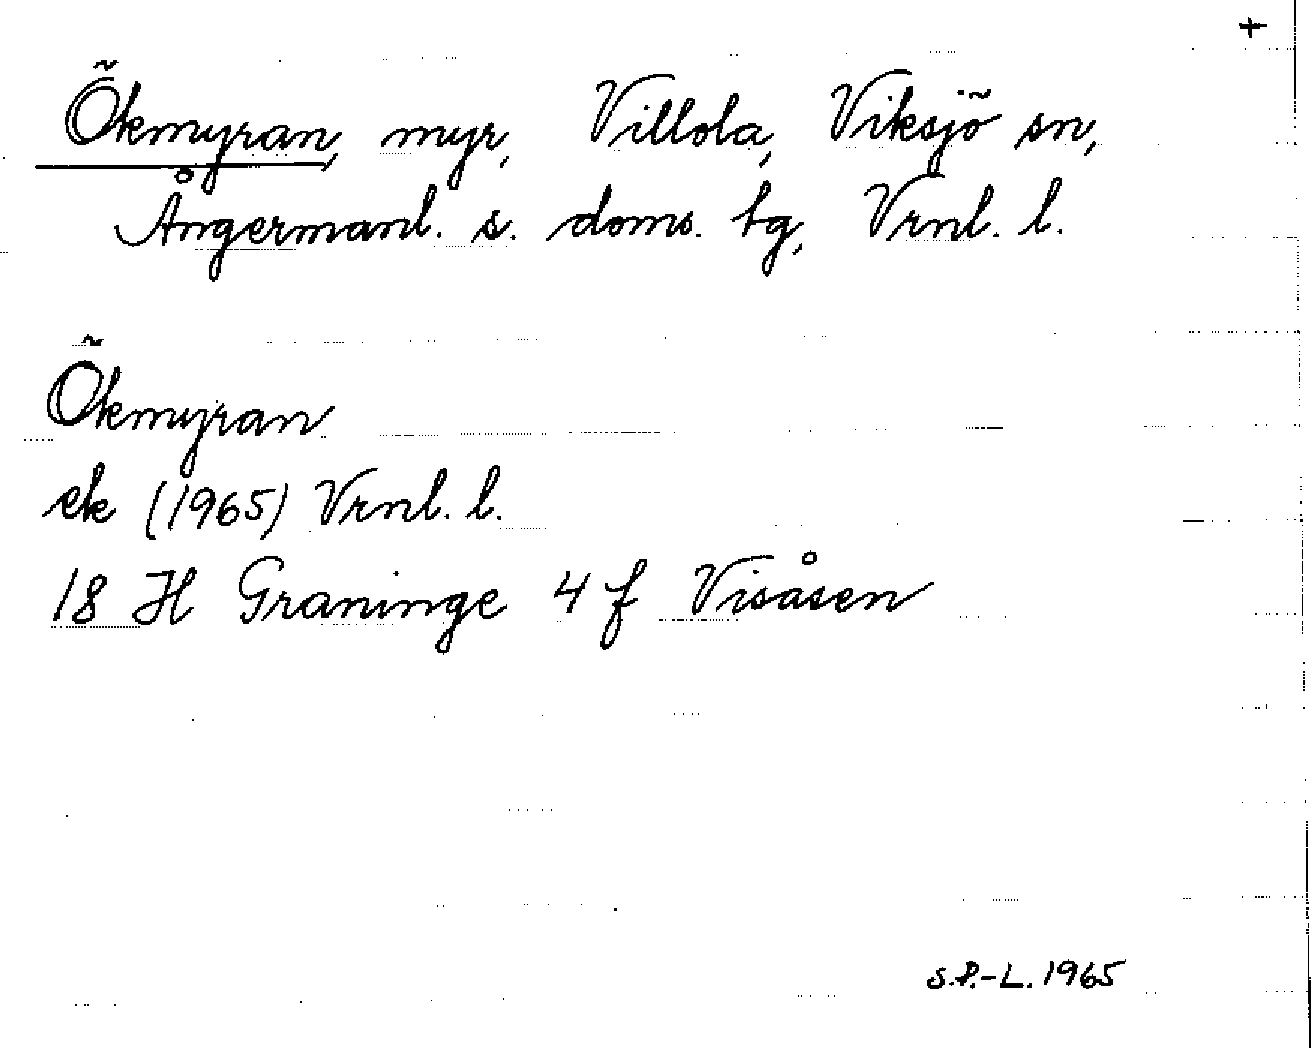 +
Ökmyran, myr, Villola, Viksjö sn,
Ångermanl. s. doms. tg, Vrnl. l.
Ökmyran
ek (1965) Vrnl. l.
18 H Graninge 4 f Visåsen
S.P.-L. 1965